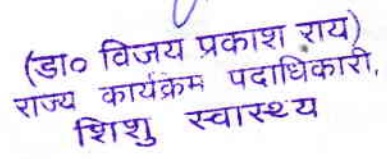 (डा० विजय प्रकाश राय)
राज्य कार्यक्रम पदाधिकारी,
शिशु स्वास्थ्य